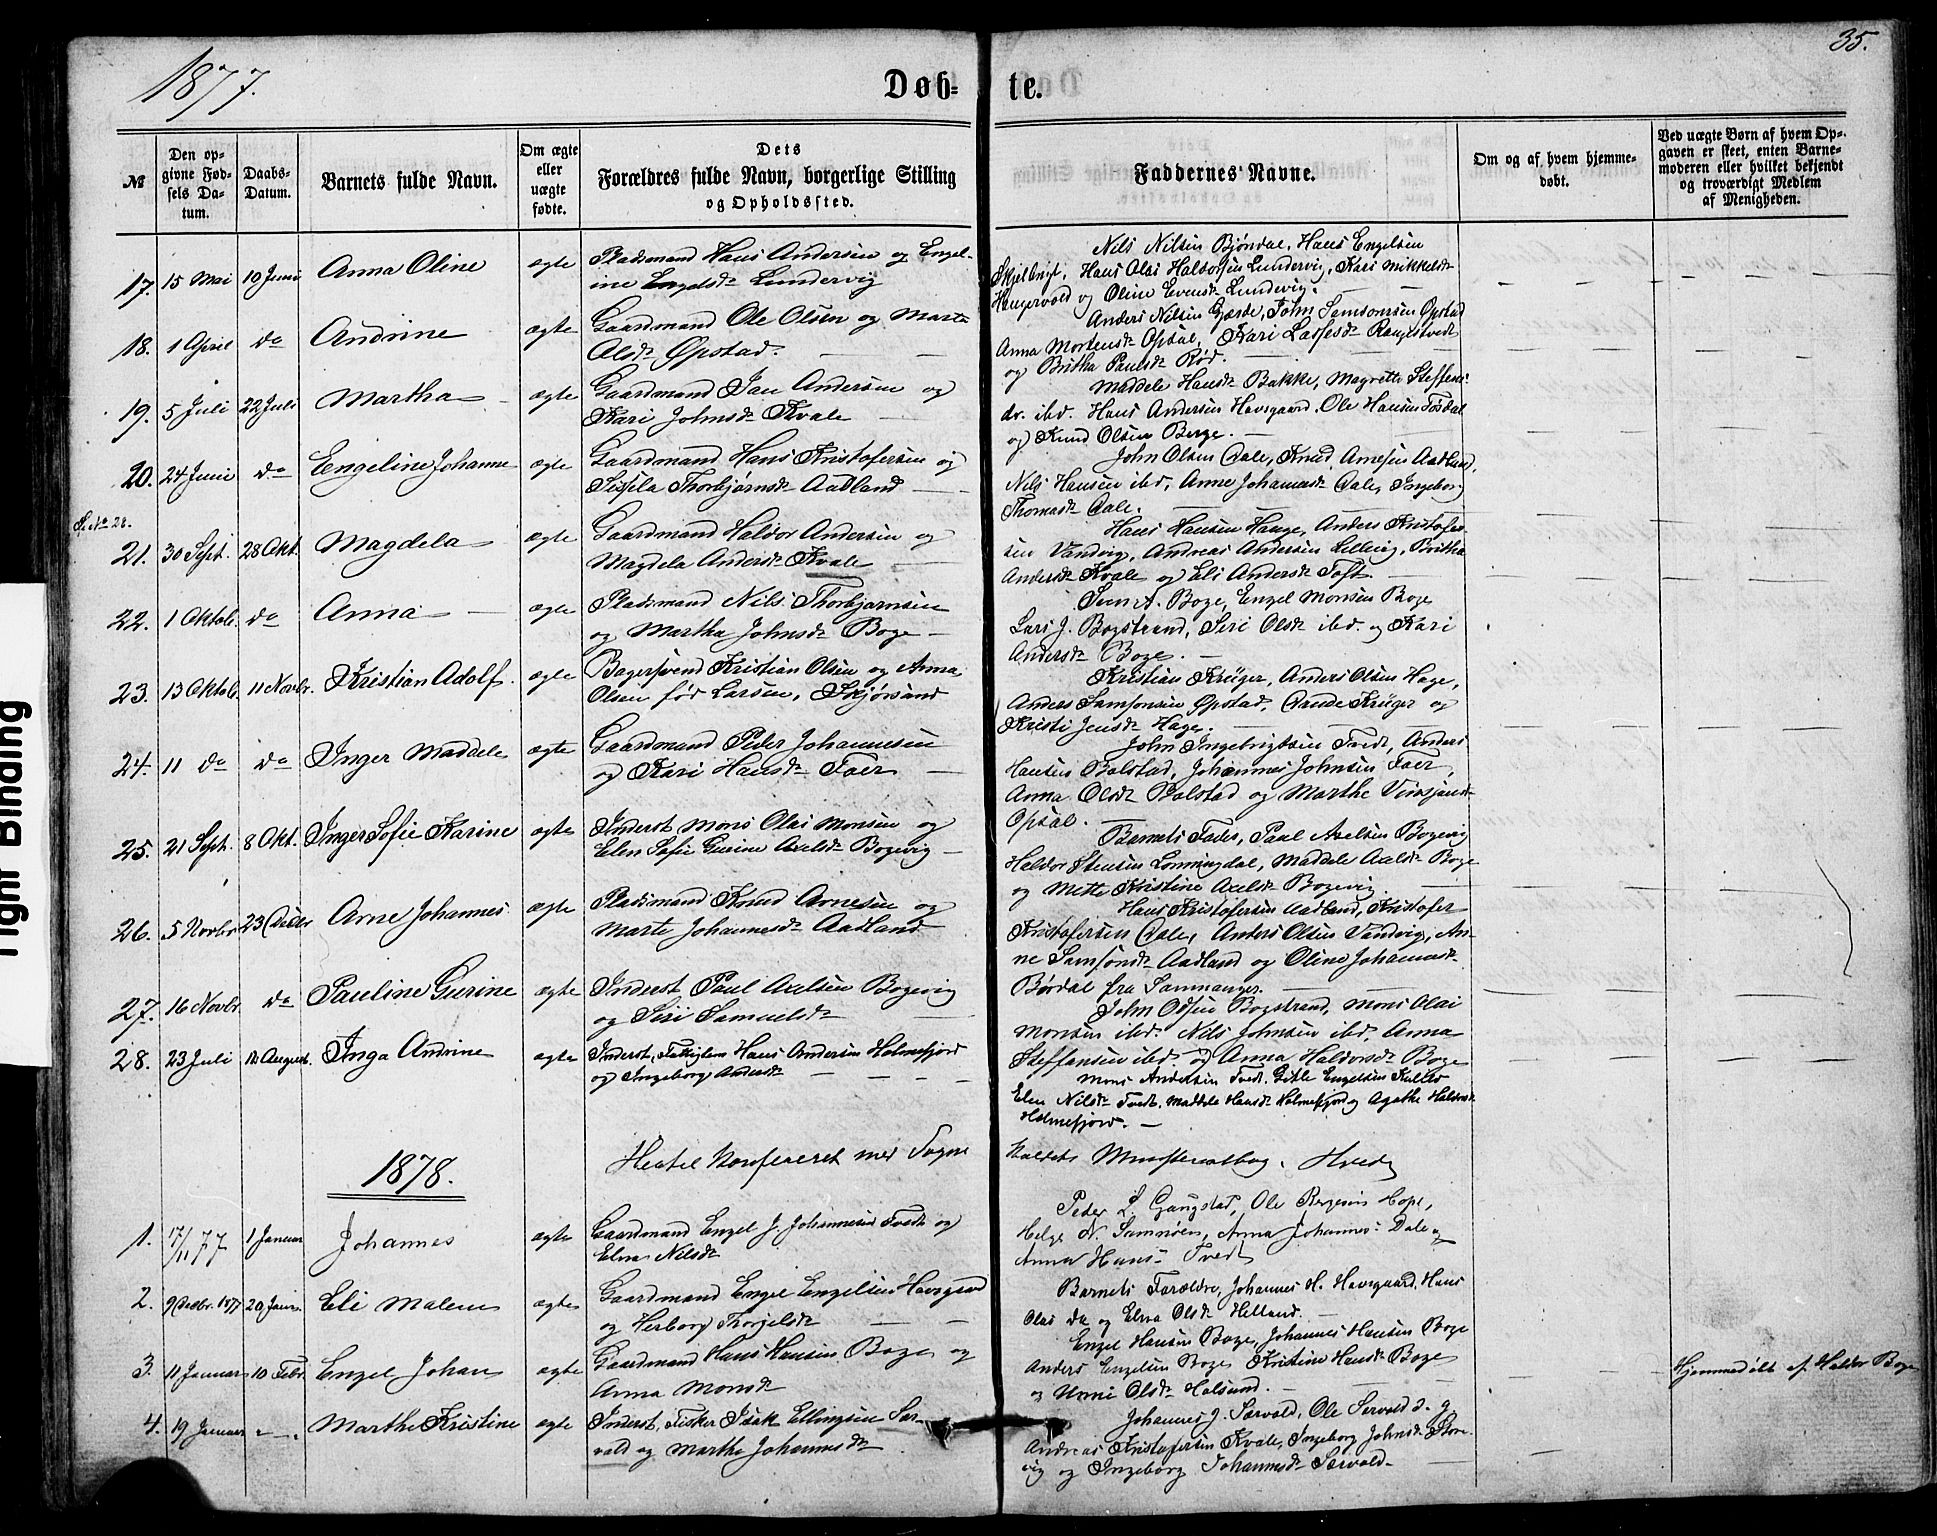 1877.
Døb-
te.
35.
№
Den opgivne Fødsels Datum.
Daabs-Datum.
Barnets fulde Navn.
Om ægte eller uægte fødte.
Dets Forældres fulde Navn, borgerlige Stilling og Opholdssted.
Faddernes Navne.
Om og af hvem hjemmedøbt.
Ved uægte Børn af hvem Opgaven er skeet, enten Barnemoderen eller hvilket bekjendt og troværdigt Medlem af Menigheden.
17. 15 Mai 10 Juni Anna Oline ægte Pladsmand Hans Andersen og Engel-
ine Engelsdt Lundervig
Nils Nilsen Bjøndal, Hans Engelsen
Hans Olai Haldorsen Lundervig, Kari Mikkelsdt
Haugervold og Oline Evensdt Lundevig.
18. 1 April do Andrine ægte Gaardmand Ole Olsen og Marta
Olsdt Øpstad.
Anders Nilsen Gjærde, John Samsonsen Øpstad
Anna Mortensdt Opsal, Kari Lassesdt Rangestvedt
og Britha Paulsdt Rød.
19. 5 Juli 22 Juli Martha ægte Gaardmand Jan Andersen og
Kari Johnsdt Kvale
Maddele Hansdt Bakke, Magrette Steffens-
dr. ibd. Hans Andersen Havsgaard, Ole Hansen Tøsdal
og Knud Olsen Berge.
20. 24 Juni do Engeline Johanne ægte Gaardmand Hans Kristofersen og
Sissela Thorbjørnsdt Aadland
John Olsen Dale, Knud Arnesen Aadland,
Nils Hansen ibd, Anne Johannesdt Dale, Ingeborg
Thomasdt Dale.
Se No 28.
21. 30 Sept. 28 Okt. Magdela ægte Gaardmand Haldor Andersen og
Magdela Andersdt Kvale
Hans Hansen Hauge, Anders Kristofer-
sen Vandvig, Andreas Andersen Lillevig, Britha
Andersdt Kvale og Eli Andersdt Toft.
22. 1 Oktob. do Anna ægte Pladsmand Nils Thorbjørnsen
og Martha Johnsdt Boge
Sven A. Boge, Engel Monsen Boge
Lars J. Bogstrand, Seri Olsdt ibd. og Kari
Andersdt Boge.
23. 13 Oktob. 11 Novbr. Kristian Adolf. ægte Bagersvend Kristian Olsen og Anna
Olsen født Larsen, Skjørsand
Kristian Krüger, Anders Olsen Hage,
Anders Samsonsen Øpstad, Krüger og
Kristi Jensdt Hage.
24. 11 do do Inger Maddele ægte Gaardmand Peder Johannesen
og Kari Hansdt Faer
John Ingebrigtsen Tvedt, Anders
Hansen Bolstad, Johannes Johnsen Faer,
Anna Olsdt Bolstad og Marthe
Opsal.
25. 21 Sept. 8 Okt. Inger Sofie Karine ægte Inderst Mons Olai Monsen og
Elen Sofie Gurine Axelsdt Bogevig
Barnets Fader, Paul Axelsen Bogevig
Haldor Stensen Lønningdal, Maddele Axelsdt Boge
og Mette Kristine Axelsdt Bogevig.
26. 5 Novbr 23 Decbr Arne Johannes ægte Pladsmand Knud Arnesen og
Marte Johannesdt Aadland
Hans Kristofersen Aadland, Kristofer
Kristofersen Dale, Anders Olsen Vandvig, An-
ne Samsonsdt Aadland og Oline Johannesdt
Børdal fra Sammanger.
27. 16 Novbr. do Pauline Gurine ægte Inderst Paul Axelsen Bogevig
og Seri Samuelsdt
John Olsen Bogstrand, Mons Olai
Monsen ibd. Nils Johnsen ibd, Anna
Steffensen ibd. og Anna Haldorsdt Boge
28. 23 Juli 12 August. Inga Andrine ægte Inderst, Fattiglem Hans Andersen Holmefjord
og Ingeborg Andersdt
Mons Andersen Tvedt. Gitle Engelsen
Elen Nilsdt Tvedt, Maddela Hansdt Holmefjord og Agathe Haldorsdt
Holmefjord.
1878.
Heftel Konfereret med Sogne
kaldets Ministerialbog.
1. 17/11 77 1 Januar Johannes ægte Gaardmand Engel J. Johannesen Tvedt og
Elna Nilsdt
Peder L. Gangstad, Ole Bergesen Hope,
Helge N. Samnøen, Anna Johannes- Dale og
Anna Hans- Tvedt
2. 9 Decbr. 1877 20 Janr. Eli Malene ægte Gaardmand Engel Engelsen Havsgaard
og Herborg Thorjelsdt
Barnets Forældre, Johannes H. Havsgaard, Hans
Olai do og Elna Olsdt Helland.
3. 11 Januar 10 Febr. Engel Johan ægte Gaardmand Hans Hansen Boge og
Anna Monsdt
Engel Hansen Boge, Johannes Hansen Boge
Anders Engelsen Boge Kristine Hansdt Boge
og Unni Olsdt Holsund.
Hjemmedøbt af Haldor Boge
4. 19 Januar Marthe Kristine ægte Inderst, Fisker Isak Ellingsen Sør-
vold og Marthe Johannesdt
Johannes J. Sørvold, Ole Sørvold d. y.
Andreas Kristofersen Kvale, Ingeborg Johnsdt Store-
vig og Ingeborg Johannesdt Sørvold
Tight Binding